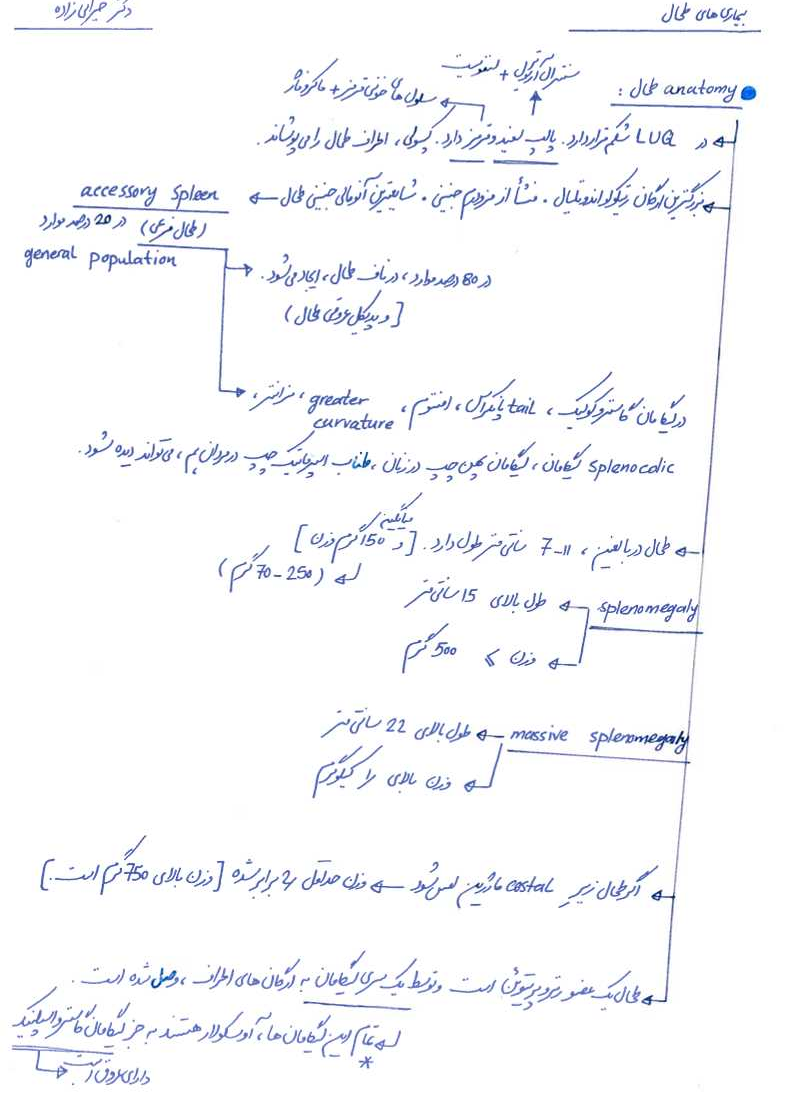 بیماری های طحال
دکتر خیرابی زاده
طحال anatomy :
سنترال آرتریول + لنفوسیت
سلول های خونی قرمز + ماکروفاژ
در LUQ شکم قرار دارد. پالپ سفید و قرمز دارد. کپسولی، اطراف طحال را می پوشاند.
بزرگترین ارگان رتیکولواندوتلیال. منشأ از مزودرم جنینی. شایعترین آنومالی جنینی طحال ← accessory spleen
(طحال فرعی) در 20 درصد موارد
general population
در 80 درصد موارد، در ناف طحال، ایجاد می شود.
[و پدیکل عروقی طحال)
در لیگامان گاستروکولیک، tail پانکراس، امنتوم، greater curvature، مزانتر،
لیگامان splenocolic، لیگامان پهن چپ در زنان، طناب اسپرماتیک چپ در مردان هم، می تواند دیده شود.
طحال در بالغین، 7-11 سانتی متر طول دارد. [و میانگین 150 گرم وزن]
(70-250 گرم)
splenomegaly ← طول بالای 15 سانتی متر
وزن ≥ 500 گرم
massive splenomegaly ← طول بالای 22 سانتی متر
وزن بالای 1 کیلوگرم
اگر طحال زیرِ costal مارژین لمس شود ← وزن حداقل 2 برابر شده [وزن بالای 750 گرم است.]
طحال یک عضو رتروپریتوئن است و توسط یک سری لیگامان به ارگان های اطراف، وصل شده است.
تمام این لیگامان ها، آوسکولار هستند به جز لیگامان گاسترواسپلنیک
*
دارای عروق است